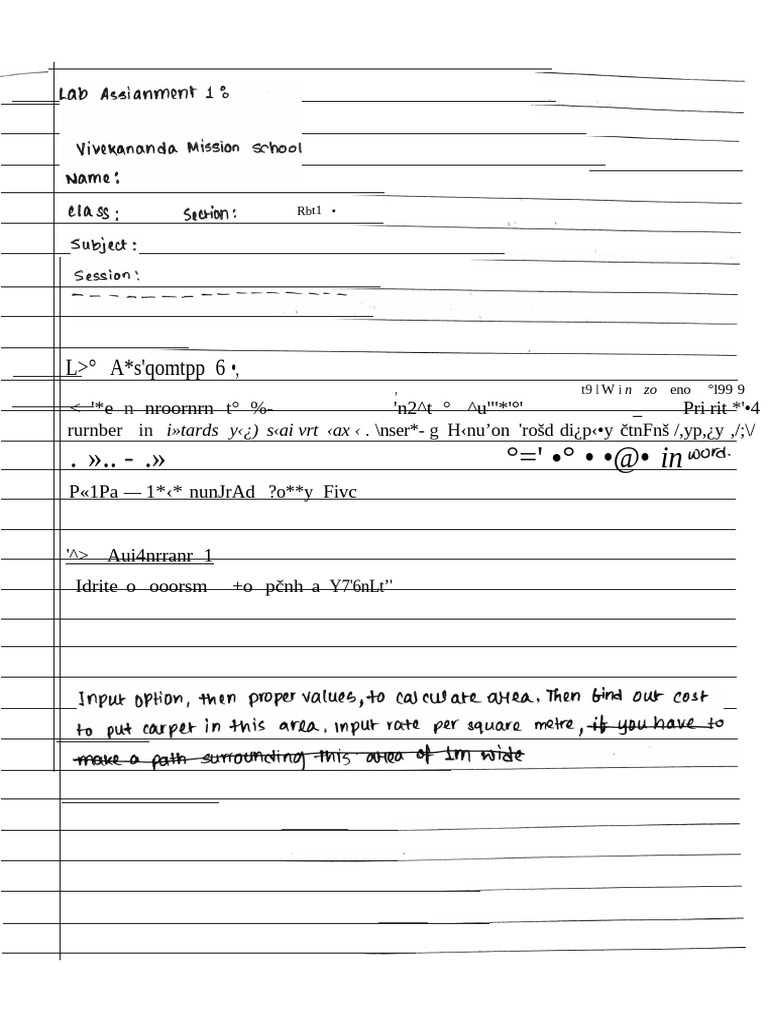 Lab Assianment 1:
Vivekananda Mission School
Name:
Class: Section: Rbt1 •
Subject:
Session:
L>° A*s'qomtpp 6 •,
t9lWin zo eno °l99 9
<- '*e n nroornrn t° %- 'n2^t ° ^u"'*'°' _ Pri rit *'•4
rurnber in i»tards y‹¿) s‹ai vrt ‹ax ‹ . \nser*- g H‹nu’on 'rošd di¿p‹•y čtnFnš /,yp,¿y ,/;\/
. ».. - .» °=' •° • •@• in word.
P«1Pa — 1*‹* nunJrAd ?o**y Fivc
'^> Aui4nrranr 1
Idrite o ooorsm +o pčnh a Y7'6nLt’'
Input option, then proper values, to calculate area. Then find out cost
to put carpet in this area. Input rate per square metre, if you have to
make a path surrounding this area of 1m wide